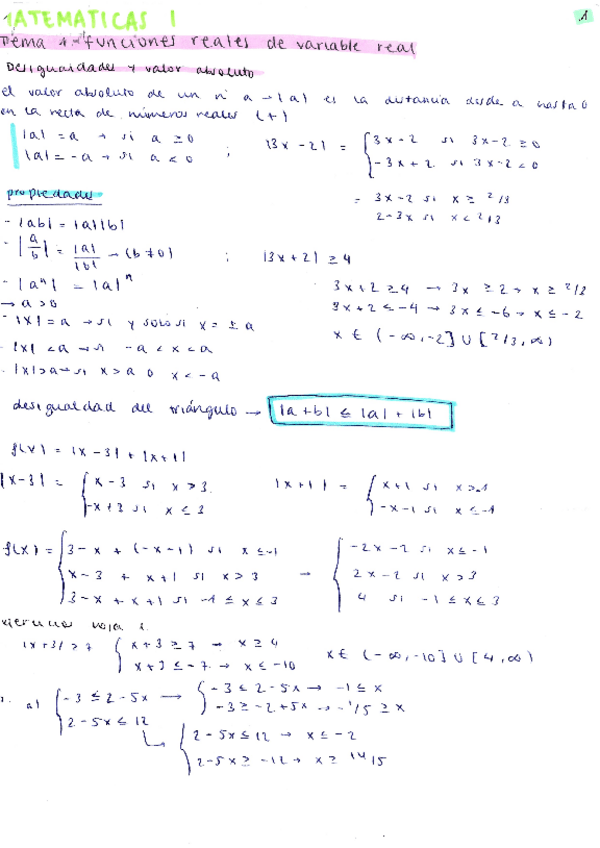 MATEMATICAS I
1
Tema 1.- funciones reales de variable real
Desigualdades y valor absoluto
el valor absoluto de un nº a → |a| es la distancia desde a hasta 0
en la recta de números reales (+)
|a| = a → si a ≥ 0
|a| = -a → si a < 0
; |3x-2| = { 3x-2 si 3x-2 ≥ 0
-3x+2 si 3x-2 < 0
= 3x-2 si x ≥ 2/3
2-3x si x < 2/3
propiedades
- |ab| = |a||b|
- |a/b| = |a|/|b| → (b ≠ 0) ; |3x+2| ≥ 4
- |aⁿ| = |a|ⁿ
3x+2 ≥ 4 → 3x ≥ 2 → x ≥ 2/3
3x+2 ≤ -4 → 3x ≤ -6 → x ≤ -2
x ∈ (-∞,-2] ∪ [2/3, ∞)
→ a > 0
- |x| = a → si y solo si x = ± a
- |x| < a → si -a < x < a
- |x| > a → si x > a o x < -a
desigualdad del triángulo → |a+b| ≤ |a| + |b|
f(x) = |x-3| + |x+1|
|x-3| = { x-3 si x > 3
-x+3 si x ≤ 3
|x+1| = { x+1 si x > -1
-x-1 si x ≤ -1
f(x) = { 3-x + (-x-1) si x ≤ -1 → { -2x-2 si x ≤ -1
x-3 + x+1 si x > 3 2x-2 si x > 3
3-x + x+1 si -1 ≤ x ≤ 3 4 si -1 ≤ x ≤ 3
|x+3| > 7 { x+3 ≥ 7 → x ≥ 4
x+3 ≤ -7 → x ≤ -10
x ∈ (-∞,-10] ∪ [4, ∞)
a) { -3 ≤ 2-5x → { -3 ≤ 2-5x → -1 ≤ x
2-5x ≤ 12 -3 ≥ -2+5x → -1/5 ≥ x
{ 2-5x ≤ 12 → x ≤ -2
2-5x ≥ -12 → x ≥ 14/5